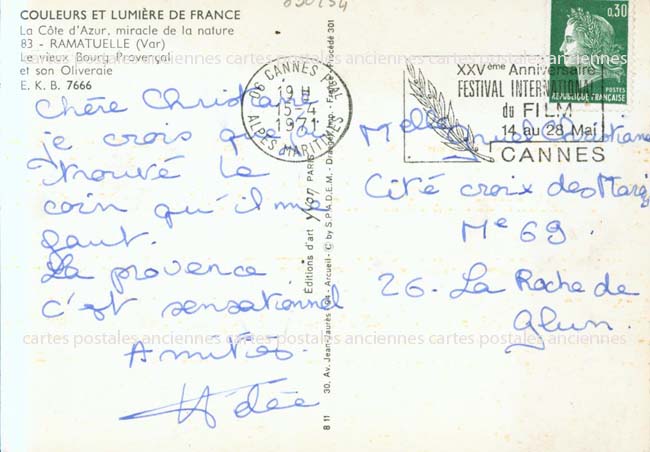 COULEURS ET LUMIÈRE DE FRANCE
La Côte d'Azur, miracle de la nature
83 - RAMATUELLE (Var)
Le vieux Bourg Provençal
et son Oliveraie
E. K. B. 7666
Chère Christiane
je crois que j'ai
trouvé le
coin qu'il me
faut.
La provence
c'est sensationnel
Amitiés.
Éditions d'art yvon PARIS
30. Av. Jean-Jaurès - Arcueil - © by S.P.A.D.E.M. - Imp. - France
B 11
CANNES
19 H
15-4
1971
ALPES MARITIMES
XXVème Anniversaire
FESTIVAL INTERNATIONAL
du FILM
14 au 28 Mai
CANNES
0,30
POSTES
RÉPUBLIQUE FRANÇAISE
Melle Christiane
Cité croix des
Me 69.
26 - La Roche de
Glun.
cartes postales anciennes cartes postales anciennes cartes postales anciennes
cartes postales anciennes cartes postales anciennes cartes postales anciennes